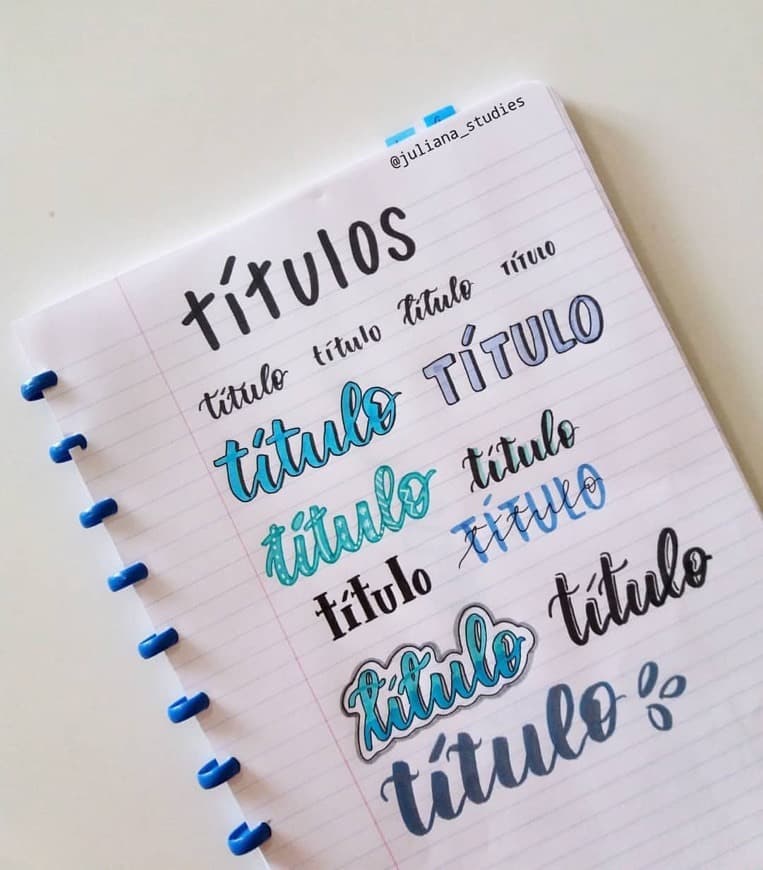 @juliana_studies
títulos
título título título TÍTULO
título TÍTULO
título título
título TÍTULO título
título título
título